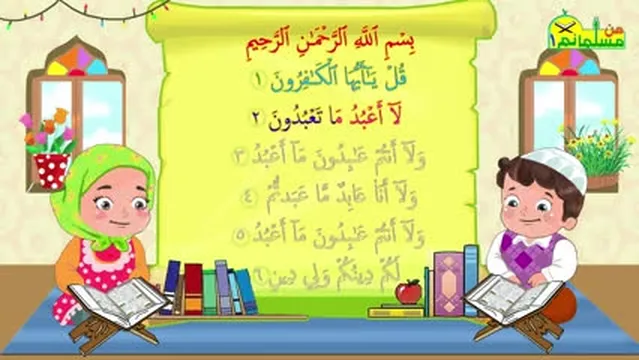 من
مسلمانم
بِسْمِ ٱللَّهِ ٱلرَّحْمَـٰنِ ٱلرَّحِيمِ
قُلْ يَـٰٓأَيُّهَا ٱلْكَـٰفِرُونَ ١
لَآ أَعْبُدُ مَا تَعْبُدُونَ ٢
وَلَآ أَنتُمْ عَـٰبِدُونَ مَآ أَعْبُدُ ٣
وَلَآ أَنَا۠ عَابِدٌ مَّا عَبَدتُّمْ ٤
وَلَآ أَنتُمْ عَـٰبِدُونَ مَآ أَعْبُدُ ٥
لَكُمْ دِينُكُمْ وَلِىَ دِينِ ٦